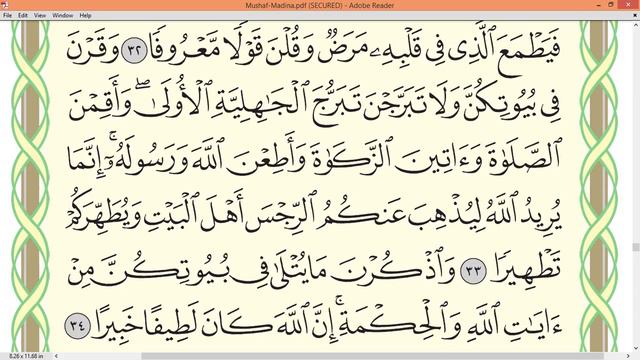 Mushaf-Madina.pdf (SECURED) - Adobe Reader
File Edit View Window Help
فَيَطْمَعَ ٱلَّذِى فِى قَلْبِهِۦ مَرَضٌ وَقُلْنَ قَوْلًا مَّعْرُوفًا ٣٢ وَقَرْنَ
فِى بُيُوتِكُنَّ وَلَا تَبَرَّجْنَ تَبَرُّجَ ٱلْجَٰهِلِيَّةِ ٱلْأُولَىٰ ۖ وَأَقِمْنَ
ٱلصَّلَوٰةَ وَءَاتِينَ ٱلزَّكَوٰةَ وَأَطِعْنَ ٱللَّهَ وَرَسُولَهُۥٓ ۚ إِنَّمَا
يُرِيدُ ٱللَّهُ لِيُذْهِبَ عَنكُمُ ٱلرِّجْسَ أَهْلَ ٱلْبَيْتِ وَيُطَهِّرَكُمْ
تَطْهِيرًا ٣٣ وَٱذْكُرْنَ مَا يُتْلَىٰ فِى بُيُوتِكُنَّ مِنْ
ءَايَٰتِ ٱللَّهِ وَٱلْحِكْمَةِ ۚ إِنَّ ٱللَّهَ كَانَ لَطِيفًا خَبِيرًا ٣٤
8.26 x 11.68 in